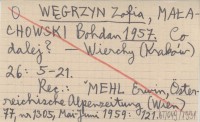 O WĘGRZYN Zofia, MAŁA-
CHOWSKI Bohdan 1957. Co
dalej? — Wierchy (Kraków)
26: 5-21.
Rec.: "MEHL Erwin, Öster-
reichische Alpenzeitung (Wien)
77, nr 1305, Mai/Juni 1959: 121.